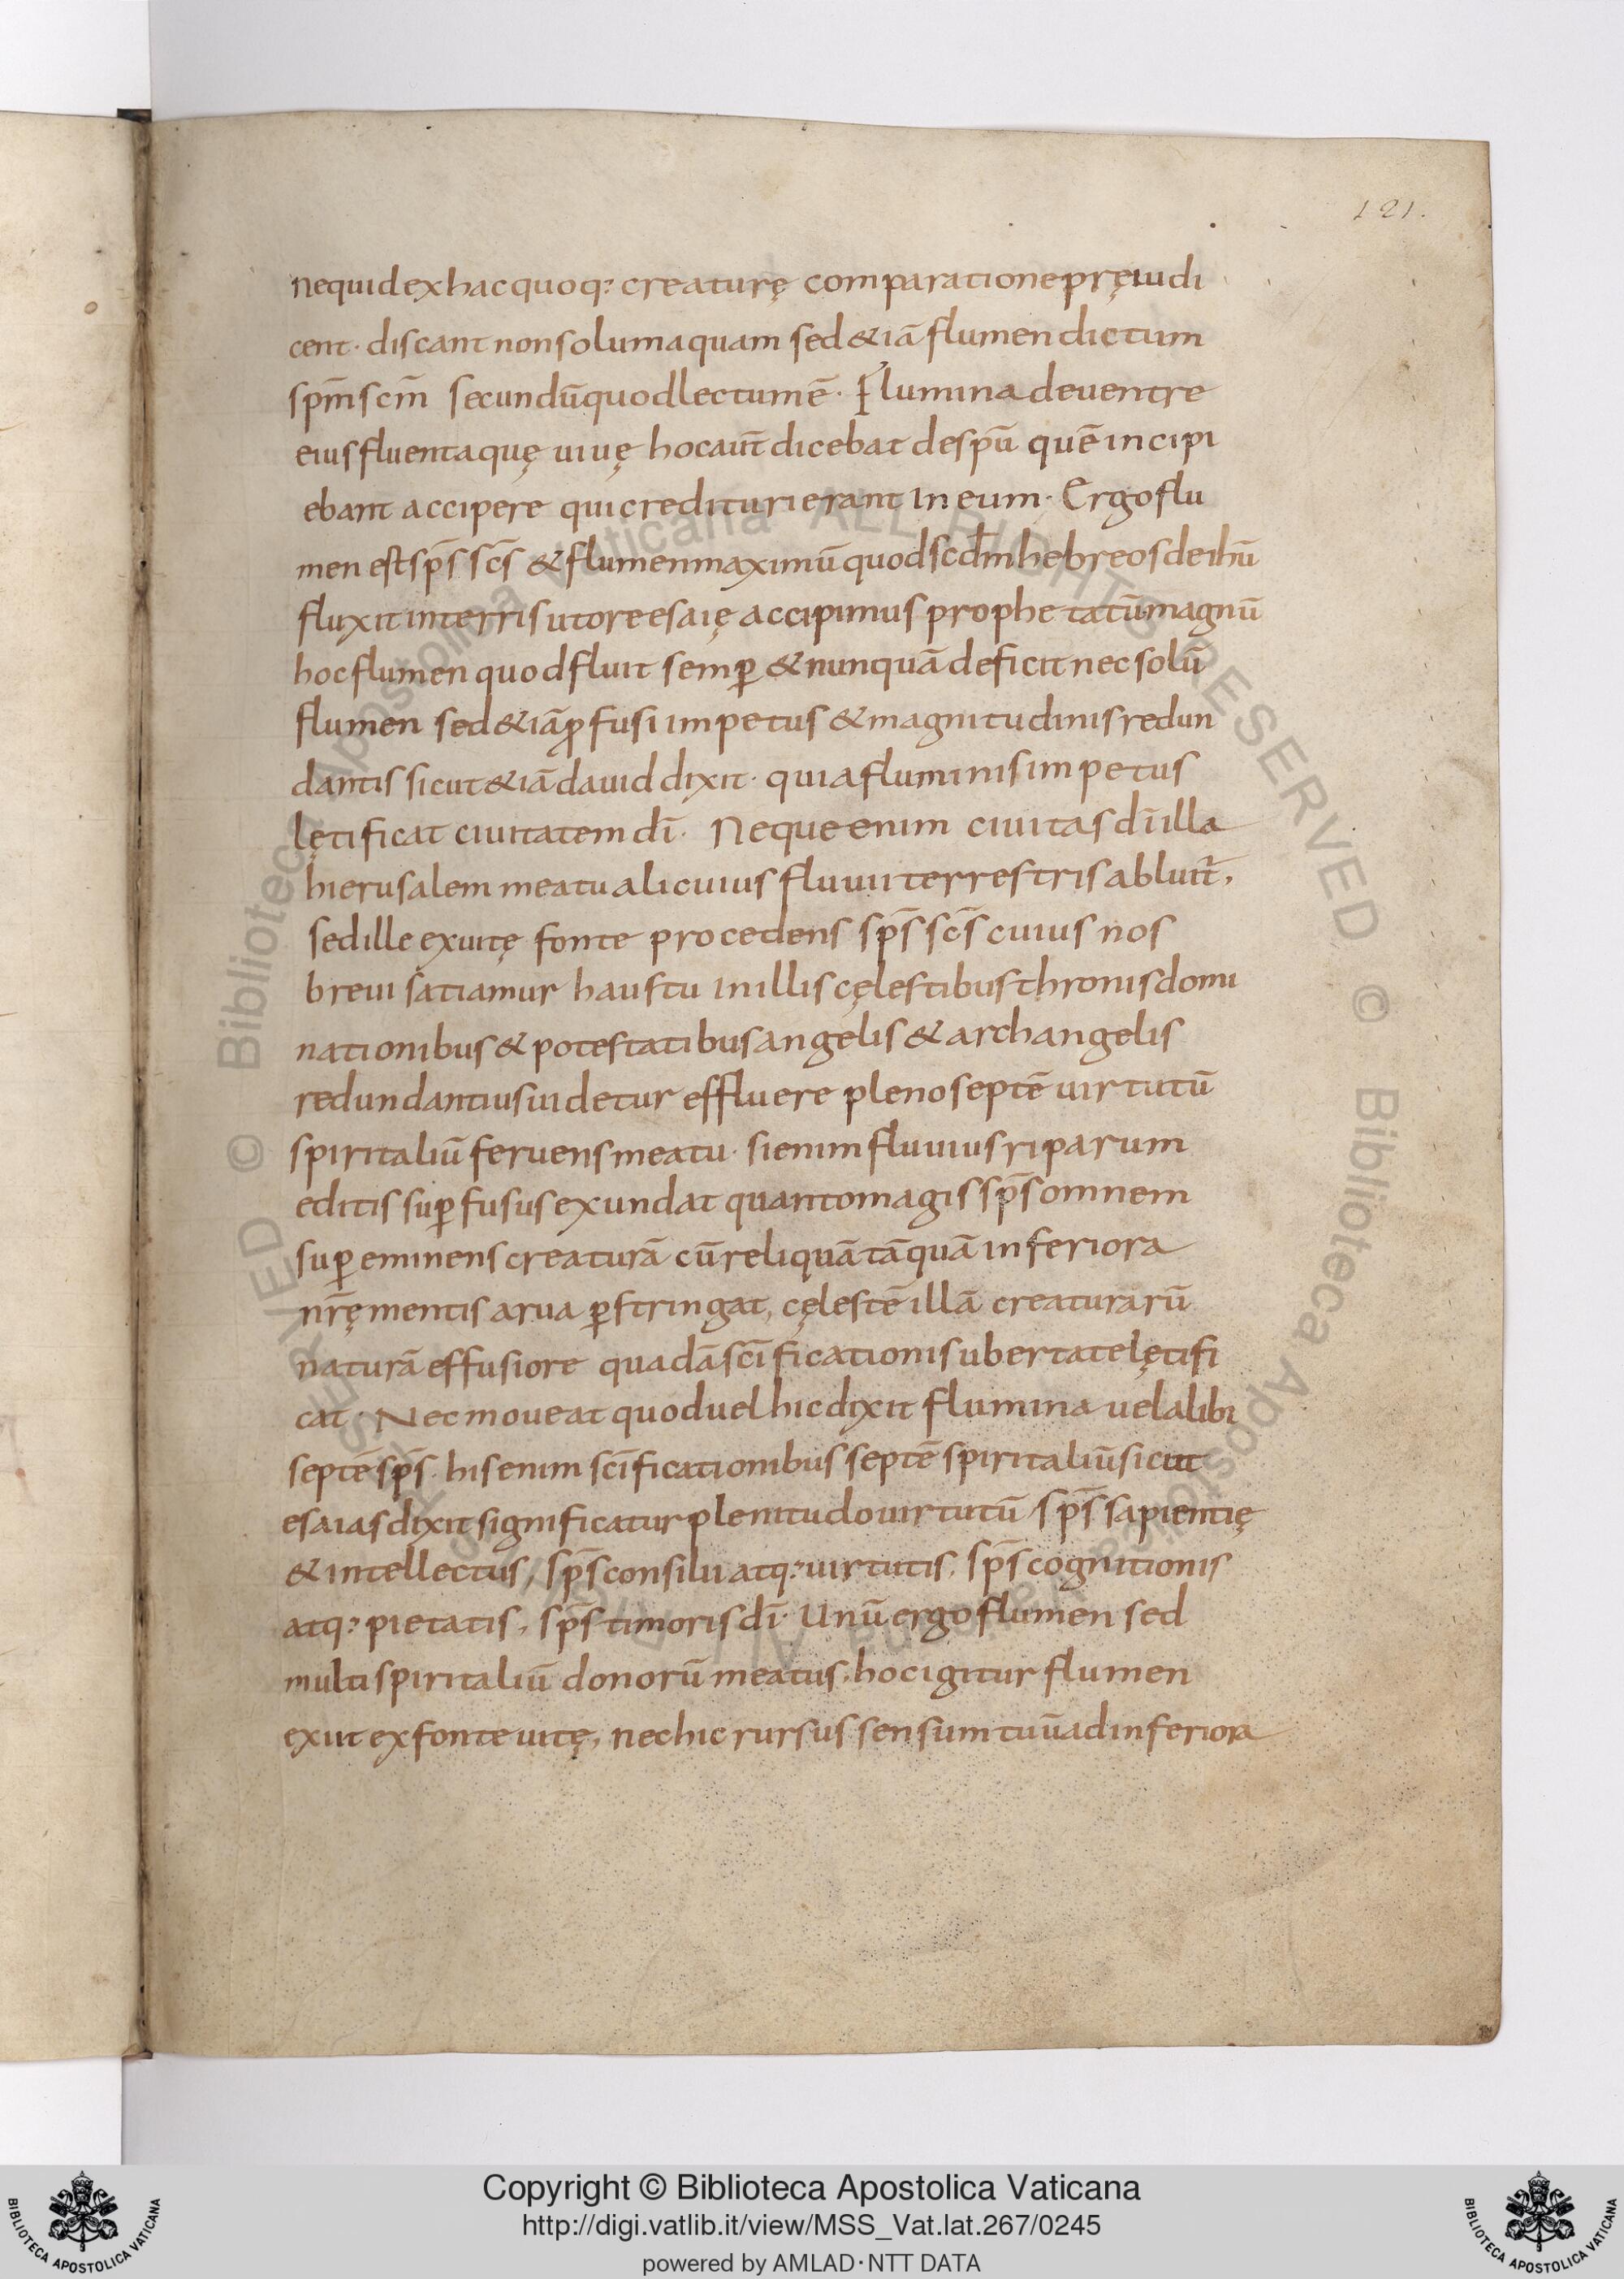 121.
nequid ex hac quoq: creaturę comparatione pręiudi
cent· discant non solum aquam sed &iā flumen dictum
sp̄m sc̄m secundū quod lectum ē· Flumina de uentre
eius fluent aquę uiuę hoc aut̄ dicebat de sp̄u quē incipi
ebant accipere qui credituri erant in eum· Ergo flu
men est sp̄s sc̄s & flumen maximū quod scd̄m hebreos de ihū
fluxit in terris ut ore esaię accipimus prophetatū magnū
hoc flumen quod fluit semꝑ & nunquā deficit nec solū
flumen sed &iā ꝓfusi impetus & magnitudinis redun
dantis sicut &iā dauid dixit· quia fluminis impetus
lętificat ciuitatem dī· Neque enim ciuitas dī illa
hierusalem meatu alicuius fluuii terrestris abluit̄,
sed ille ex uitę fonte procedens sp̄s sc̄s cuius nos
breui satiamur haustu in illis cęlestibus thronis domi
nationibus & potestatibus angelis & archangelis
redundantius uidetur effluere pleno septē uirtutū
spiritaliū feruens meatu· si enim fluuius riparum
editis suꝑfusus exundat quanto magis sp̄s omnem
suꝑeminens creaturā cū reliquā tāquā inferiora
nr̄ę mentis arua ꝑstringat, cęlestē illā creaturarū
naturā effusiore quadā sc̄ificationis ubertate lętifi
cat· Nec moueat quod uel hic dixit flumina uel alibi
septē sp̄s· his enim sc̄ificationibus septē spiritaliū sicut
esaias dixit significatur plenitudo uirtutū sp̄s sapientię
& intellectus, sp̄s consilii atq: uirtutis, sp̄s cognitionis
atq: pietatis, sp̄s timoris dī· Unū ergo flumen sed
multi spiritaliū donorū meatus, hoc igitur flumen
exiit ex fonte uitę, nec hic rursus sensum tuū ad inferiora
Copyright © Biblioteca Apostolica Vaticana
http://digi.vatlib.it/view/MSS_Vat.lat.267/0245
powered by AMLAD·NTT DATA
BIBLIOTECA APOSTOLICA VATICANA
BIBLIOTECA APOSTOLICA VATICANA